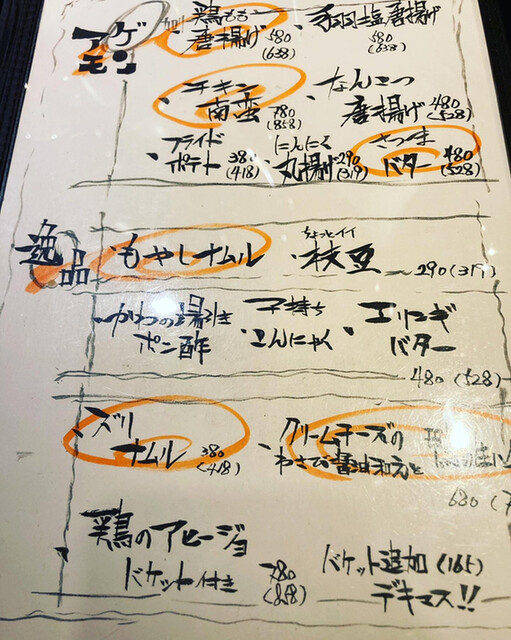 アゲモン
・鶏もも唐揚げ 580(638)
・手羽塩唐揚げ 580(638)
・チキン南蛮 780(858)
・なんこつ唐揚げ 480(528)
・フライドポテト 380(418)
・にんにく丸揚げ 290(319)
・さつまバター 480(528)
逸品
・もやしナムル
・ちょっとイイ枝豆
290(319)
・かわの湯引きポン酢
・子持ちこんにゃく
・エリンギバター
480(528)
・ズリナムル 380(418)
・クリームチーズのわさび醤油和えと
680(7
・鶏のアヒージョバケット付き 780(858)
バケット追加(165)デキマス!!